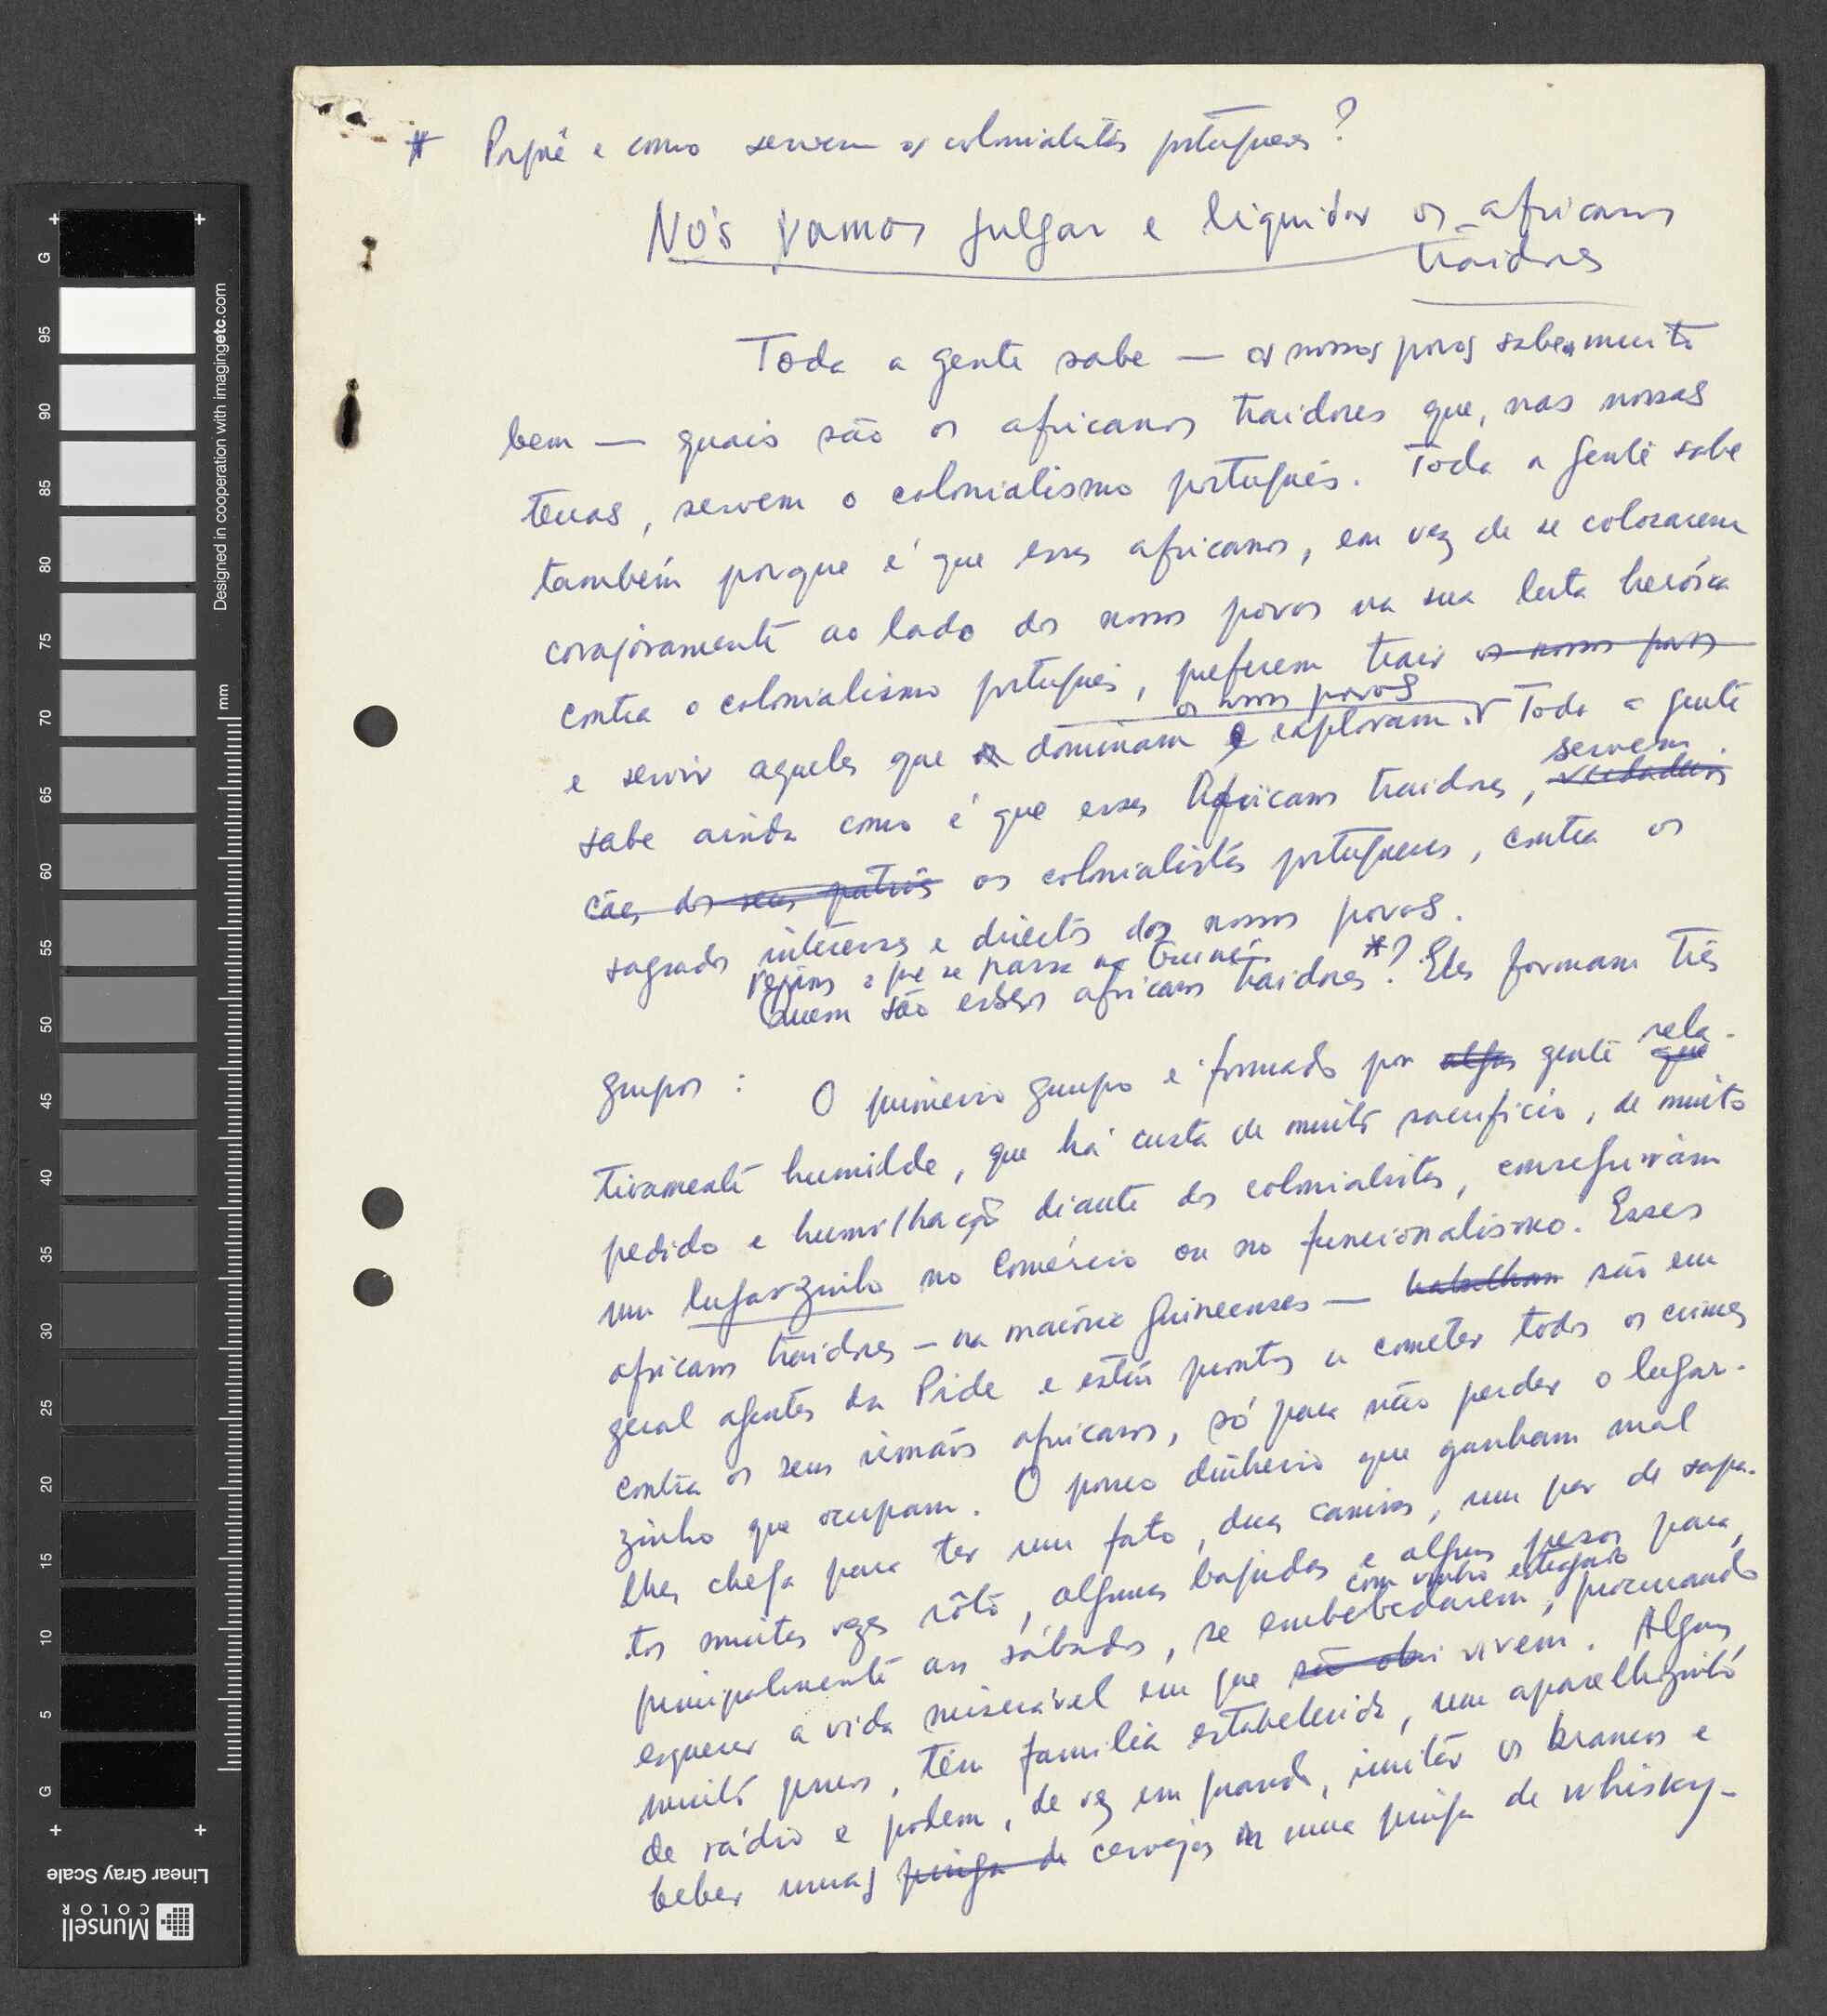 * Porquê e como servem os colonialistas portugueses?
Nós vamos julgar e liquidar os africanos
traidores
Toda a gente sabe — os nossos povos sabem muito
bem — quais são os africanos traidores que, nas nossas
terras, servem o colonialismo português. Toda a gente sabe
também porque é que esses africanos, em vez de se colocarem
corajosamente ao lado dos nossos povos na sua luta heróica
contra o colonialismo português, preferem trair os nossos povos
os nossos povos
e servir aqueles que dominam e exploram. Toda a gente
servem
sabe ainda como é que esses Africanos traidores, verdadeiros
cães dos seus patrões os colonialistas portugueses, contra os
sagrados interesses e direitos dos nossos povos.
Vejamos o que se passa na Guiné.
Quem são esses africanos traidores*? Eles formam três
grupos:
rela-
O primeiro grupo é formado por alguns gente que
tivamente humilde, que há custa de muito sacrifício, de muito
pedido e humilhação diante dos colonialistas, conseguiram
um lugarzinho no Comércio ou no funcionalismo. Esses
africanos traidores — na maioria guineenses — trabalham são em
geral agentes da Pide e estão prontos a cometer todos os crimes
contra os seus irmãos africanos, só para não perder o lugar-
zinho que ocupam. O pouco dinheiro que ganham mal
lhes chega para ter um fato, duas camisas, um par de sapa-
tos muitas vezes rôto, algumas bajudas e alguns pesos para,
com vinho estragado
principalmente aos sábados, se embebedarem, procurando
esquecer a vida miserável em que vivem. Alguns,
muito poucos, têm família estabelecida, um aparelhozinho
de rádio e podem, de vez em quando, imitar os brancos e
beber umas pinga de cervejas ou uma pinga de whisky-
G
95
90
85
80
75
70
65
60
55
50
45
40
35
30
25
20
15
10
5
G
mm
Designed in cooperation with imagingetc.com
Linear Gray Scale
Munsell
COLOR